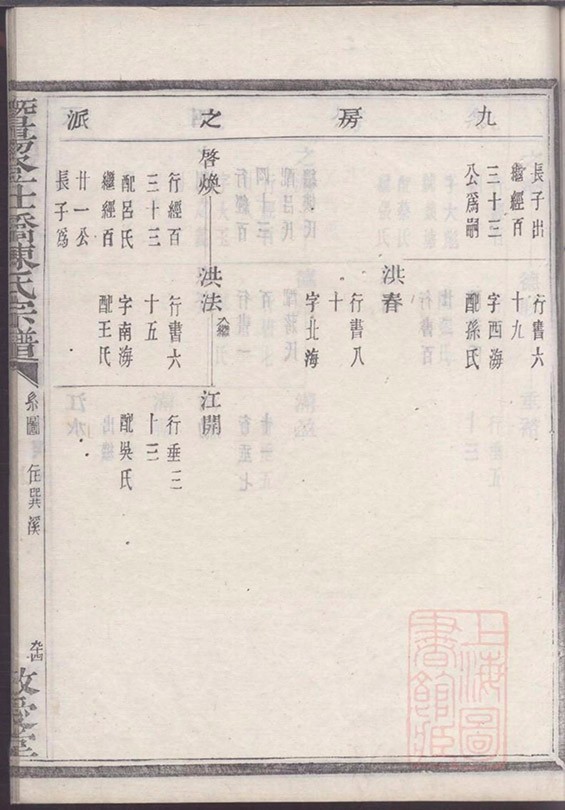 九房之派
長子出
繼經百
三十三
公為嗣
行書六
十九
字西海
配孫氏
洪春
行書八
十
字北海
啓煥
行經百
三十三
配呂氏
繼經百
廿一公
長子為
洪法
入繼
行書六
十五
字南海
配王氏
江開
行垂三
十三
配吳氏
陳氏宗譜
系圖
住巽溪
上海圖
書館藏